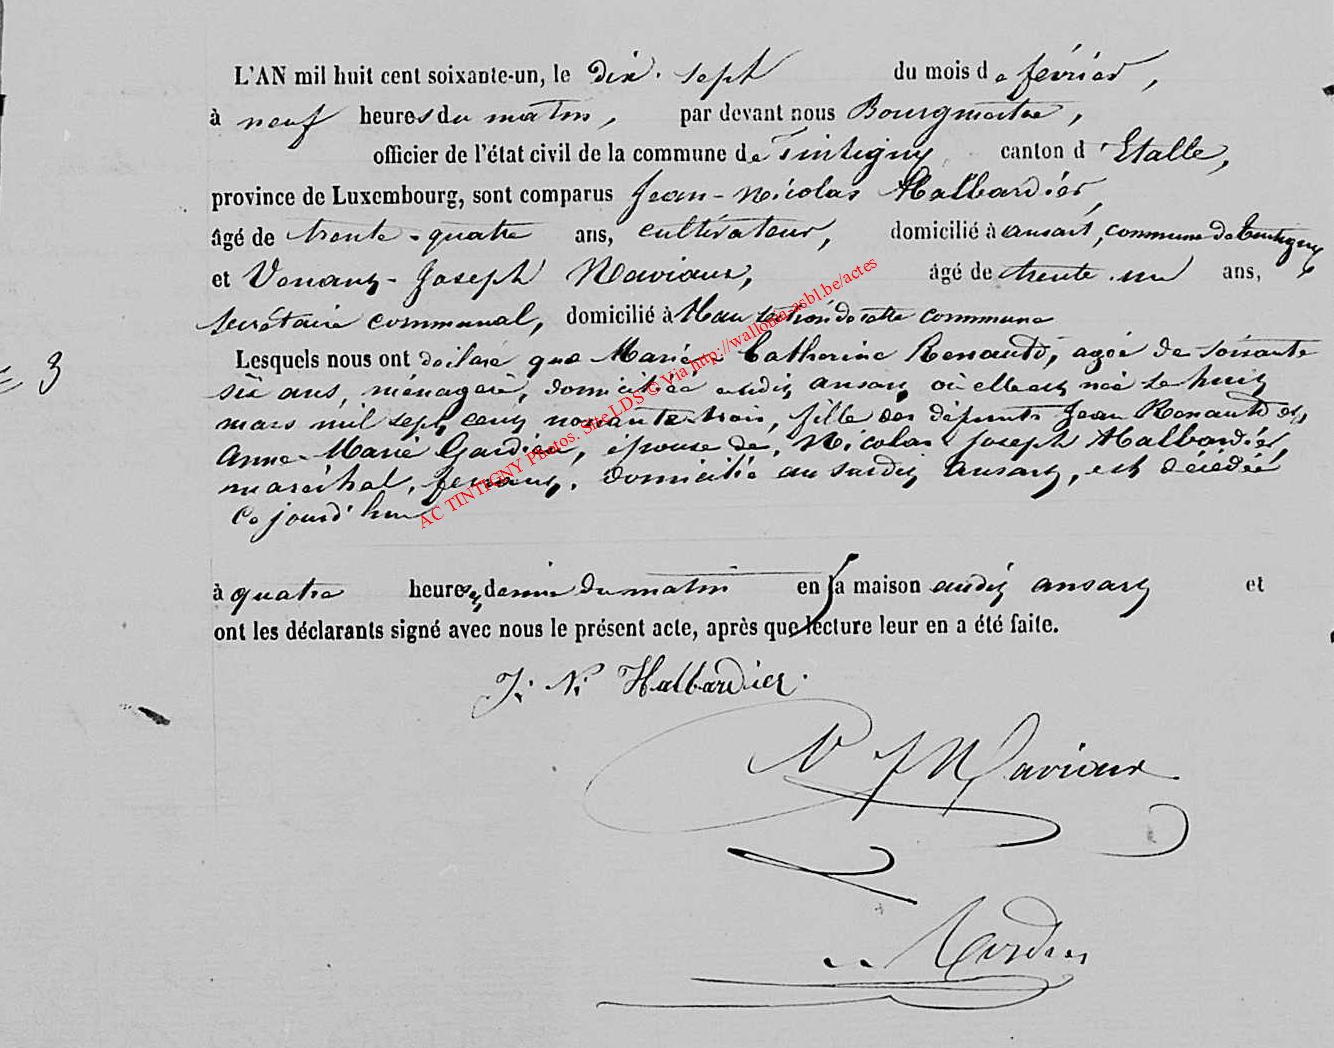 L'AN mil huit cent soixante-un, le dix-sept du mois de février,
à neuf heures du matin, par devant nous Bourgmestre,
officier de l'état civil de la commune de Tintigny, canton d'Etalle,
province de Luxembourg, sont comparus Jean-Nicolas Halbardier,
âgé de trente-quatre ans, cultivateur, domicilié à ansart, commune de tintigny
et Venant-Joseph Naviaux, âgé de trente-un ans,
secrétaire communal, domicilié à han de cette commune
Lesquels nous ont déclaré que Marie-Catherine Renauld, agée de soixante
six ans, ménagère, domiciliée audit ansart, où elle est née le huit
mars mil sept cent nonante-trois, fille des défunts Jean Renauld et
Anne-Marie Gardien, épouse de Nicolas Joseph Halbardier,
maréchal ferrant, domicilié au susdit Ansart, est décédée
ce jourd'hui
à quatre heures et demie du matin en sa maison audit ansart et
ont les déclarants signé avec nous le présent acte, après que lecture leur en a été faite.
3
J. N. Halbardier.
V J Naviaux
AC TINTIGNY Photos. Site LDS © Via http://wallonia-asbl.be/actes